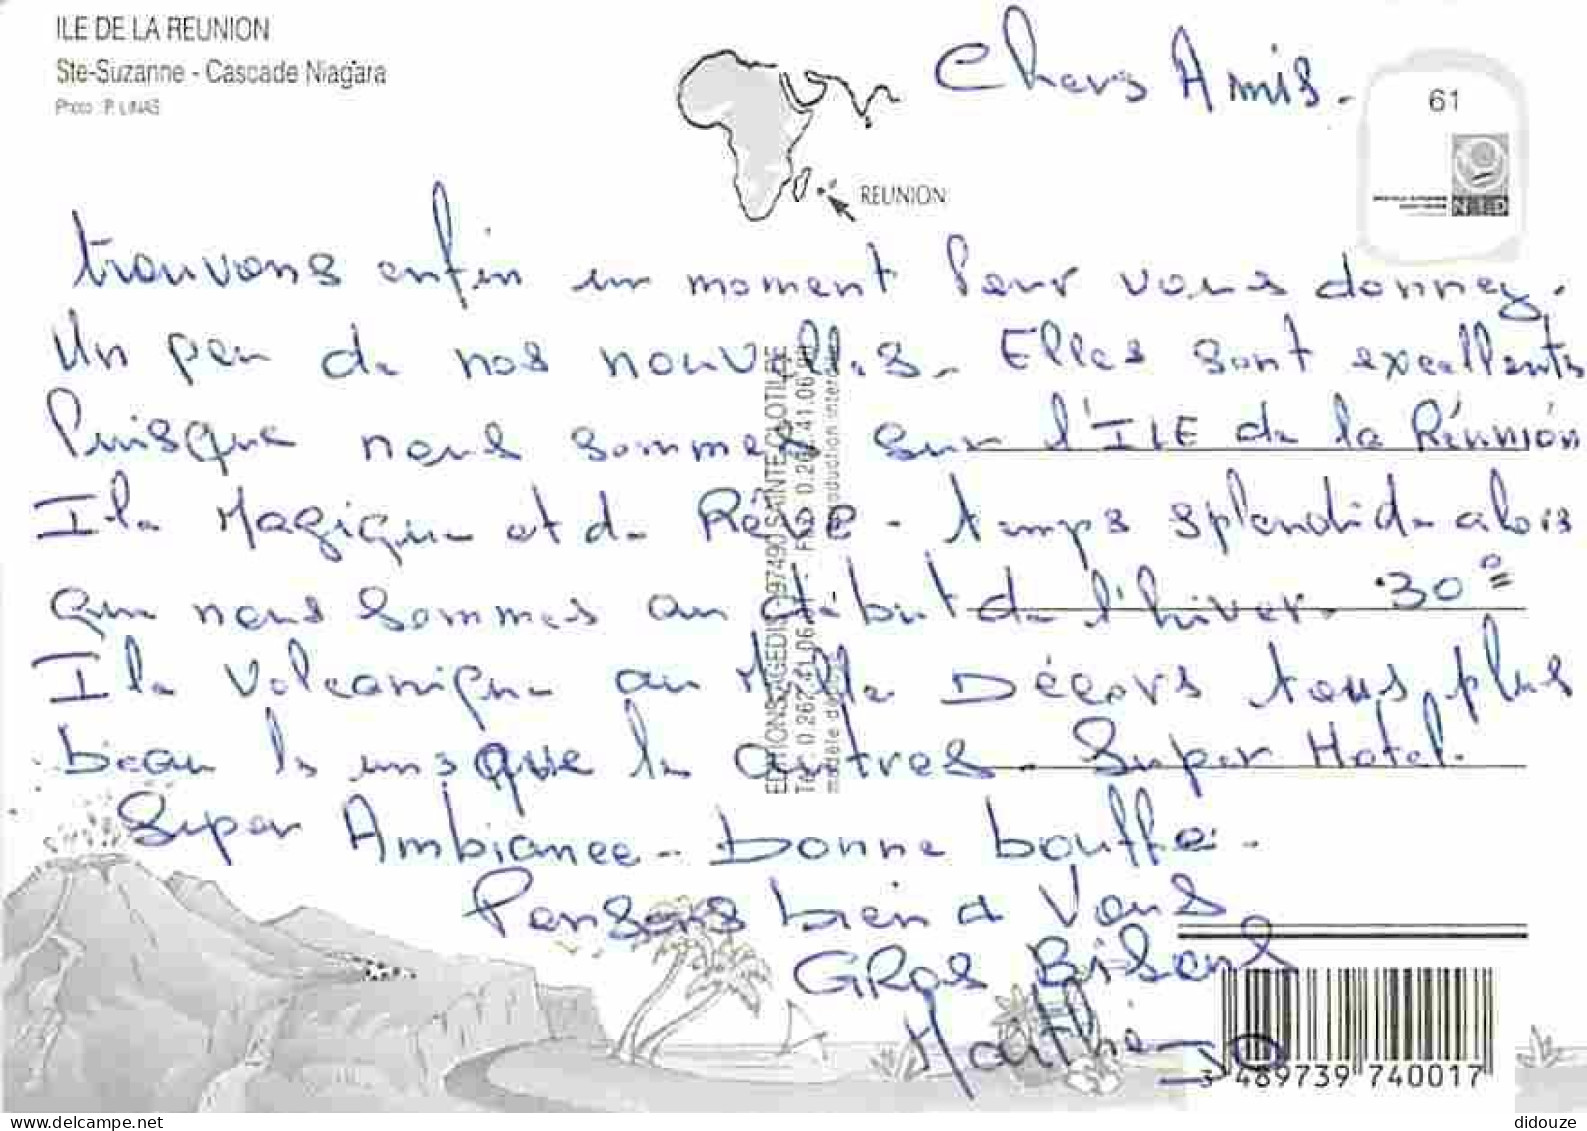 ILE DE LA REUNION
Ste-Suzanne - Cascade Niagara
Photo : P. LINAS
REUNION
61
Chers Amis.
trouvons enfin un moment Pour vous donner.
Un peu de nos nouvelles. Elles sont excellentes
Puisque nous sommes sur l'ILE de la Réunion
Ile Magique et de Rêve. temps splendide alors
que nous sommes au début de l'hiver. 30°
Ile Volcanique au Mille Décors tous plus
beau les uns que les autres. Super Hotel.
Super Ambiance. Bonne bouffe.
Pensons bien à Vous
GRos Bisous
Mathie JO
EDITIONS AGEDIS 97490 SAINTE CLOTILDE
modèle déposé
3 489739 740017
delcampe.net
didouze